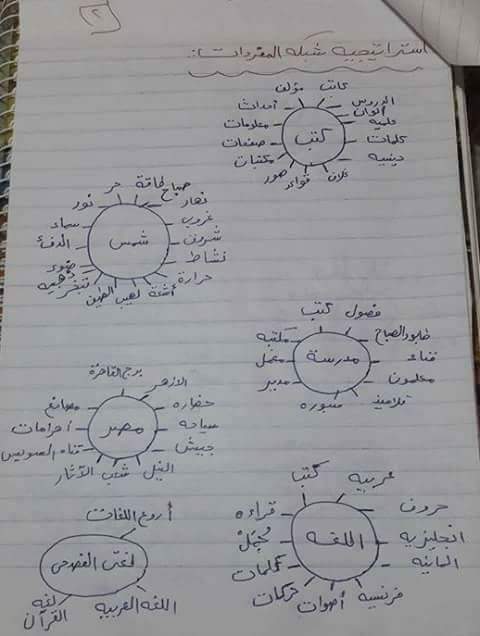 ٢
استراتيجيه شبكه المفردات:
كاتب
مؤلف
أحداث
معلومات
صفحات
مكتبات
صور
قواعد
غلاف
دينيه
كلمات
علميه
ألوان
الدروس
كتب
صباح
طاقة
حر
نور
سماء
الدفئ
ضوء
ذهبيه
تبخر
الطين
لهب
أشعة
حرارة
نشاط
شروق
غروب
نهار
شمس
فصول
كتب
مكتبه
معمل
مدير
سبوره
تلاميذ
معلمون
فناء
طابور الصباح
مدرسة
برج القاهرة
الازهر
حضاره
سياحه
جيش
النيل
شعب
الآثار
قناه السويس
أهرامات
مصانع
مصر
عربيه
كتب
قراءه
جُمَلْ
كلمات
حركات
أصوات
فرنسيه
المانيه
انجليزيه
حروف
اللغه
أروع اللغات
لغتى الفصحى
اللغه العربيه
لغه القرآن